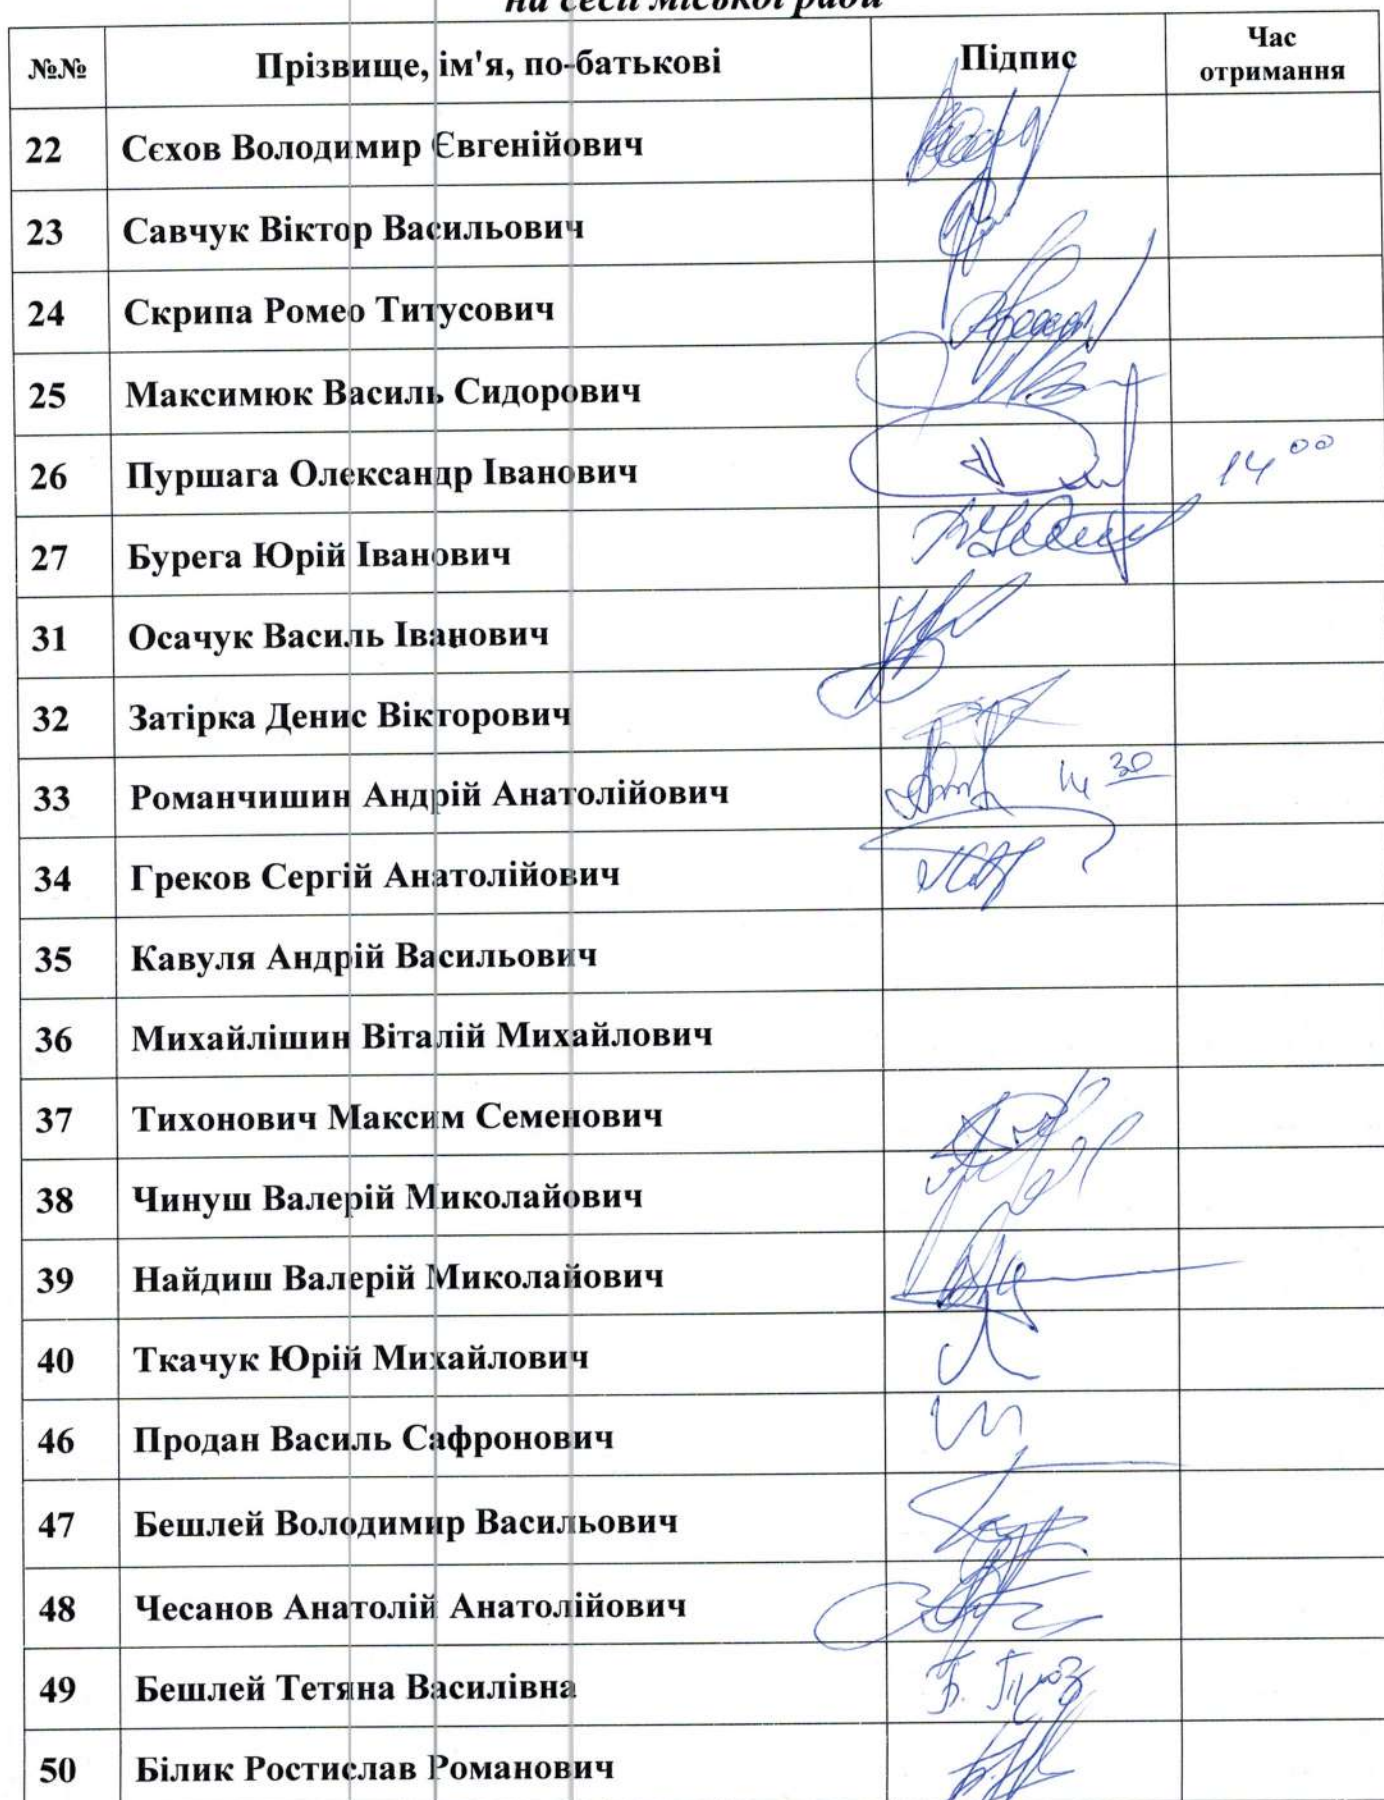 на сесії міської ради
№№ Прізвище, ім'я, по-батькові Підпис Час отримання
22 Сєхов Володимир Євгенійович
23 Савчук Віктор Васильович
24 Скрипа Ромео Титусович
25 Максимюк Василь Сидорович
26 Пуршага Олександр Іванович 14 00
27 Бурега Юрій Іванович
31 Осачук Василь Іванович
32 Затірка Денис Вікторович
33 Романчишин Андрій Анатолійович 14 30
34 Греков Сергій Анатолійович
35 Кавуля Андрій Васильович
36 Михайлішин Віталій Михайлович
37 Тихонович Максим Семенович
38 Чинуш Валерій Миколайович
39 Найдиш Валерій Миколайович
40 Ткачук Юрій Михайлович
46 Продан Василь Сафронович
47 Бешлей Володимир Васильович
48 Чесанов Анатолій Анатолійович
49 Бешлей Тетяна Василівна
50 Білик Ростислав Романович